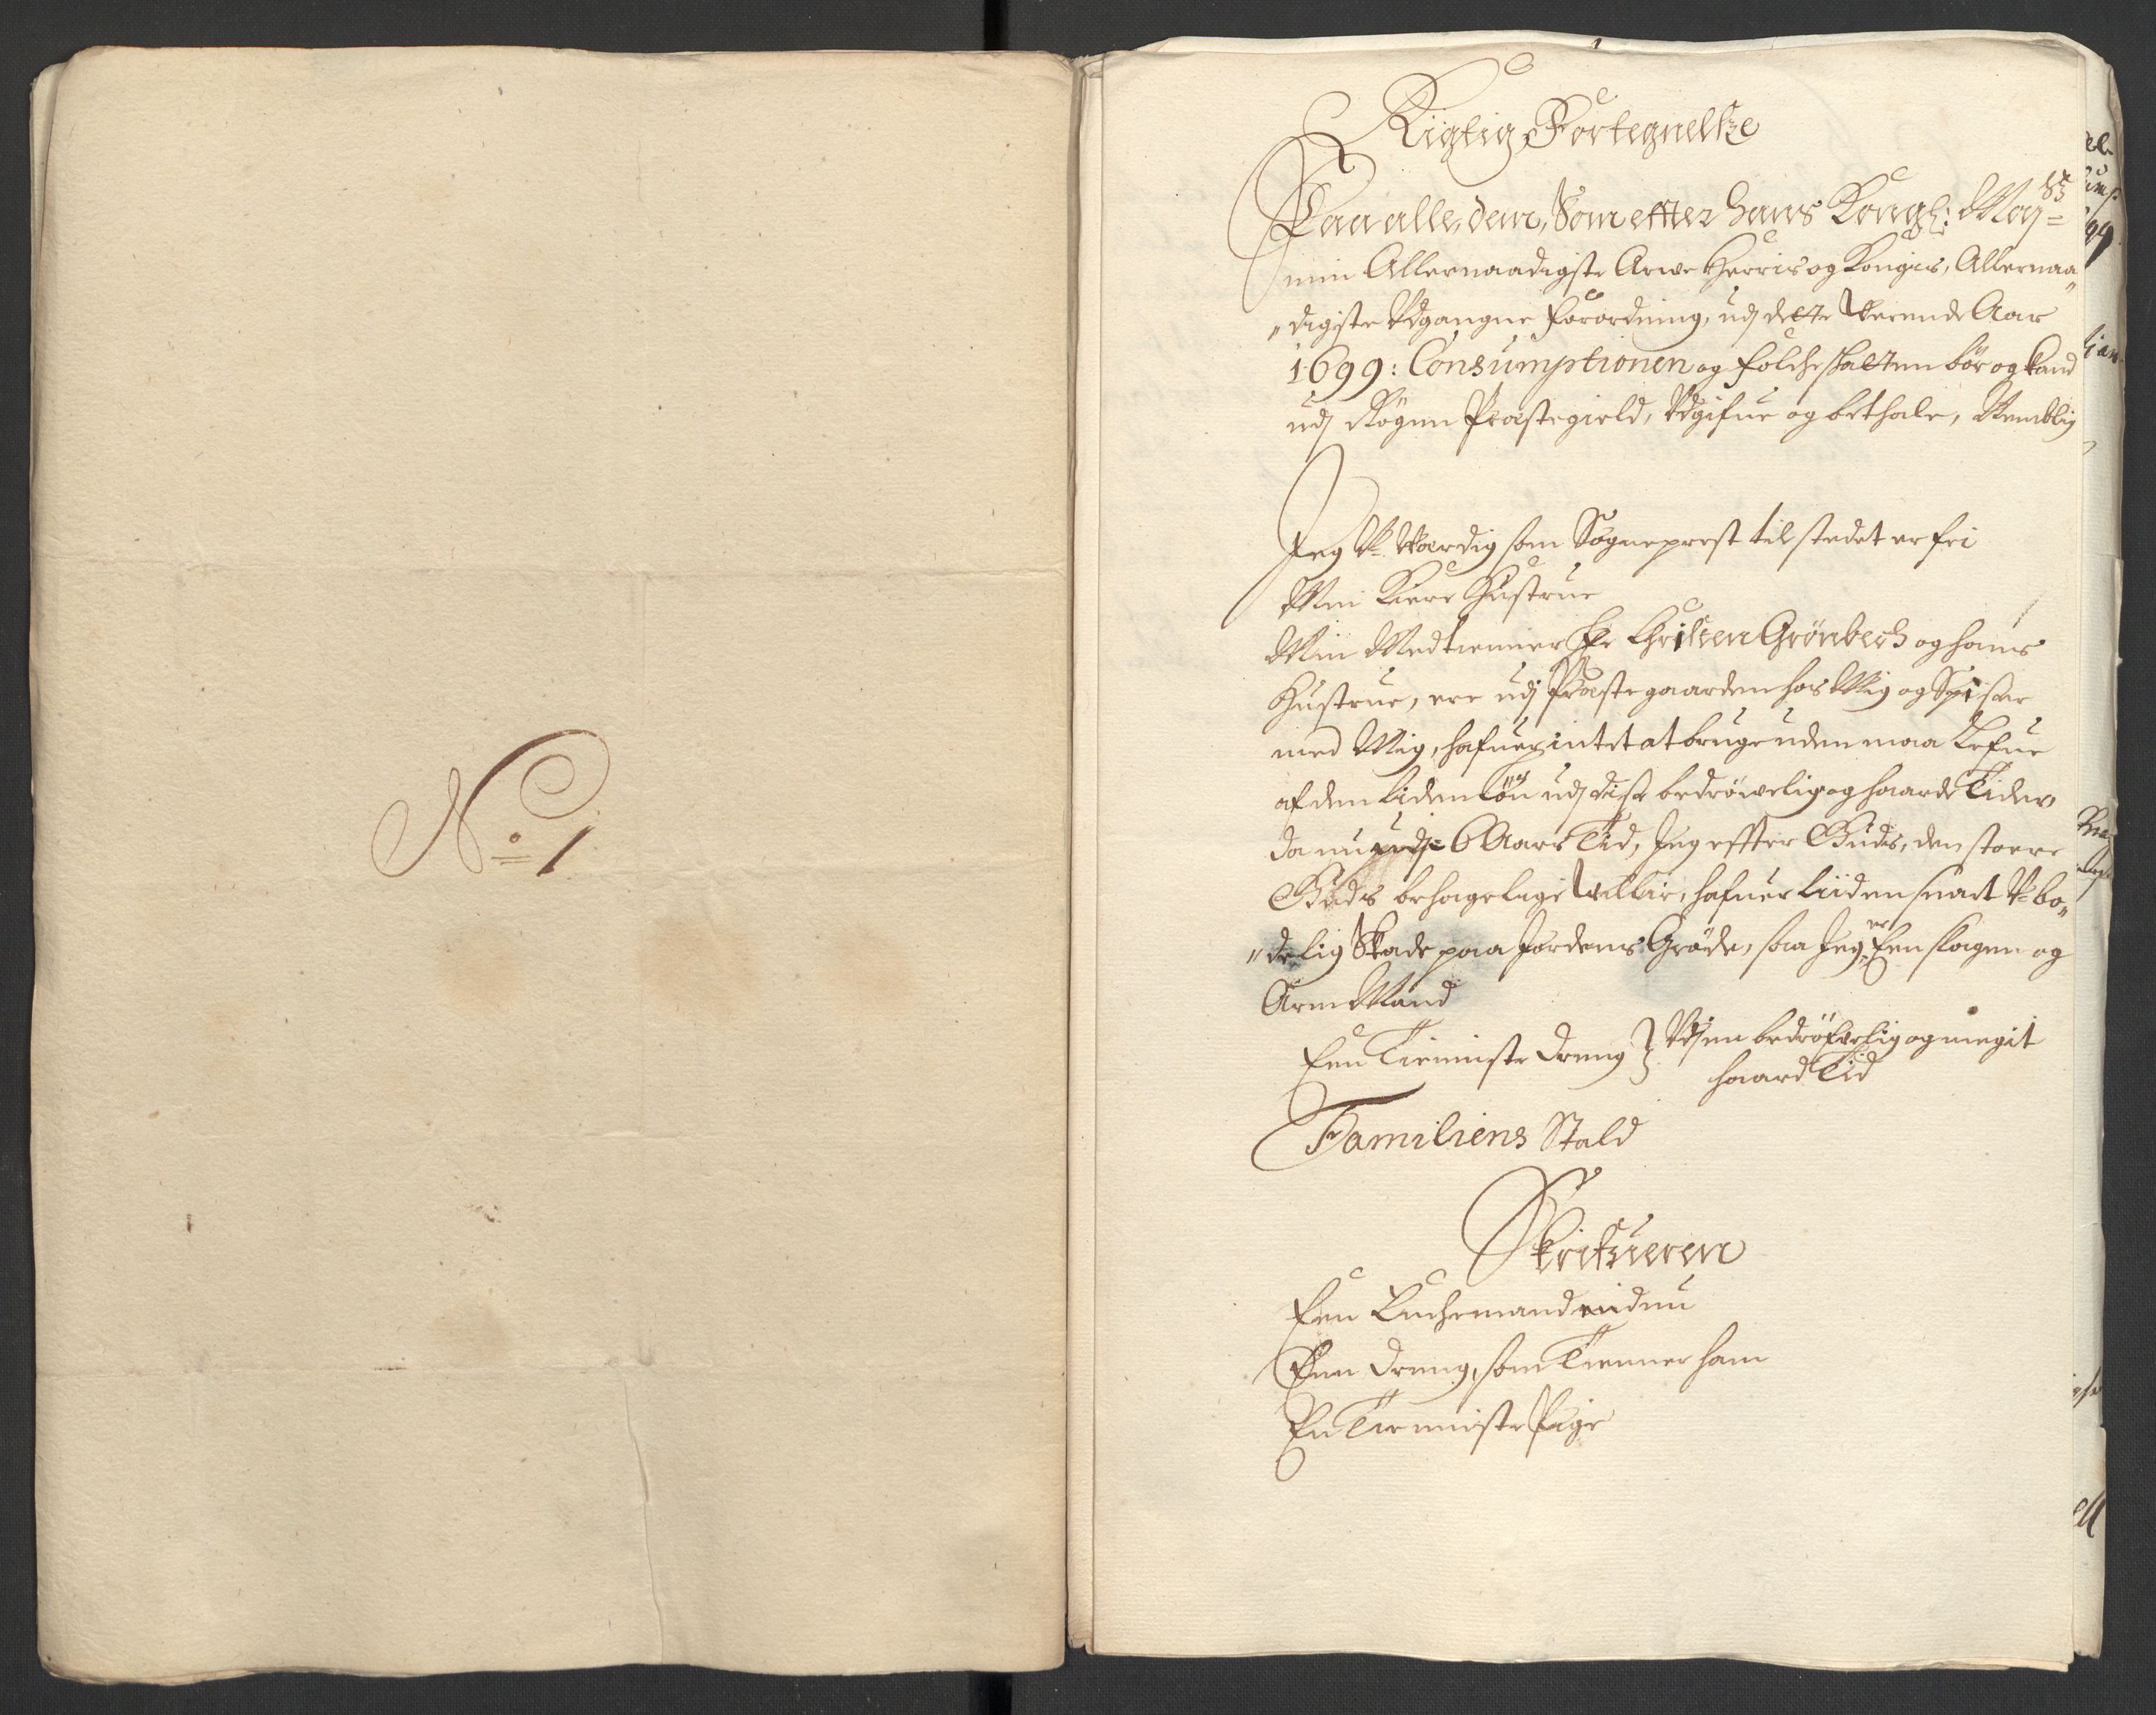 No 1
Rigtig Fortegnelse
Paa alle, dem, Som effter hans Kongl: Mayts
min Allernaadigste Arve Herris og Kongis, Allernaa„
„digste Udgangne Forordning, udj dette Werende Aar
1699: Consumptionen og Folcheskatten bör og kand
udj Rögen Præstegield, Udgifue og bethale, Nemblig
Jeg U-Værdig som Sogneprest til stedet er fri
Min Kiere Hustrue
Min Medtienner Hr Christen Grönbech og hans
Hustrue, ere udj Præstegaarden hos Mig og Spiser
med Mig, hafuer intet at bruge uden maa Lefue
af den liden lön udj disse bedröwelig og haarde Tider,
da nu udj 6 Aars Tid, Jeg effter Guds, den stoere
Guds behagelige Willie, hafuer liiden saadt U-bo„
„delig Skade paa Jordens Gröde, saa Jeg er Een slagen og
Arm Mand
Een Tienniste dreng } Udj en bedröfvelig og megit
haard Tid
Familiens Stald
Skrifueren
Een Enchemand endnu
Een dreng, som Tienner ham
En Tienniste Pige